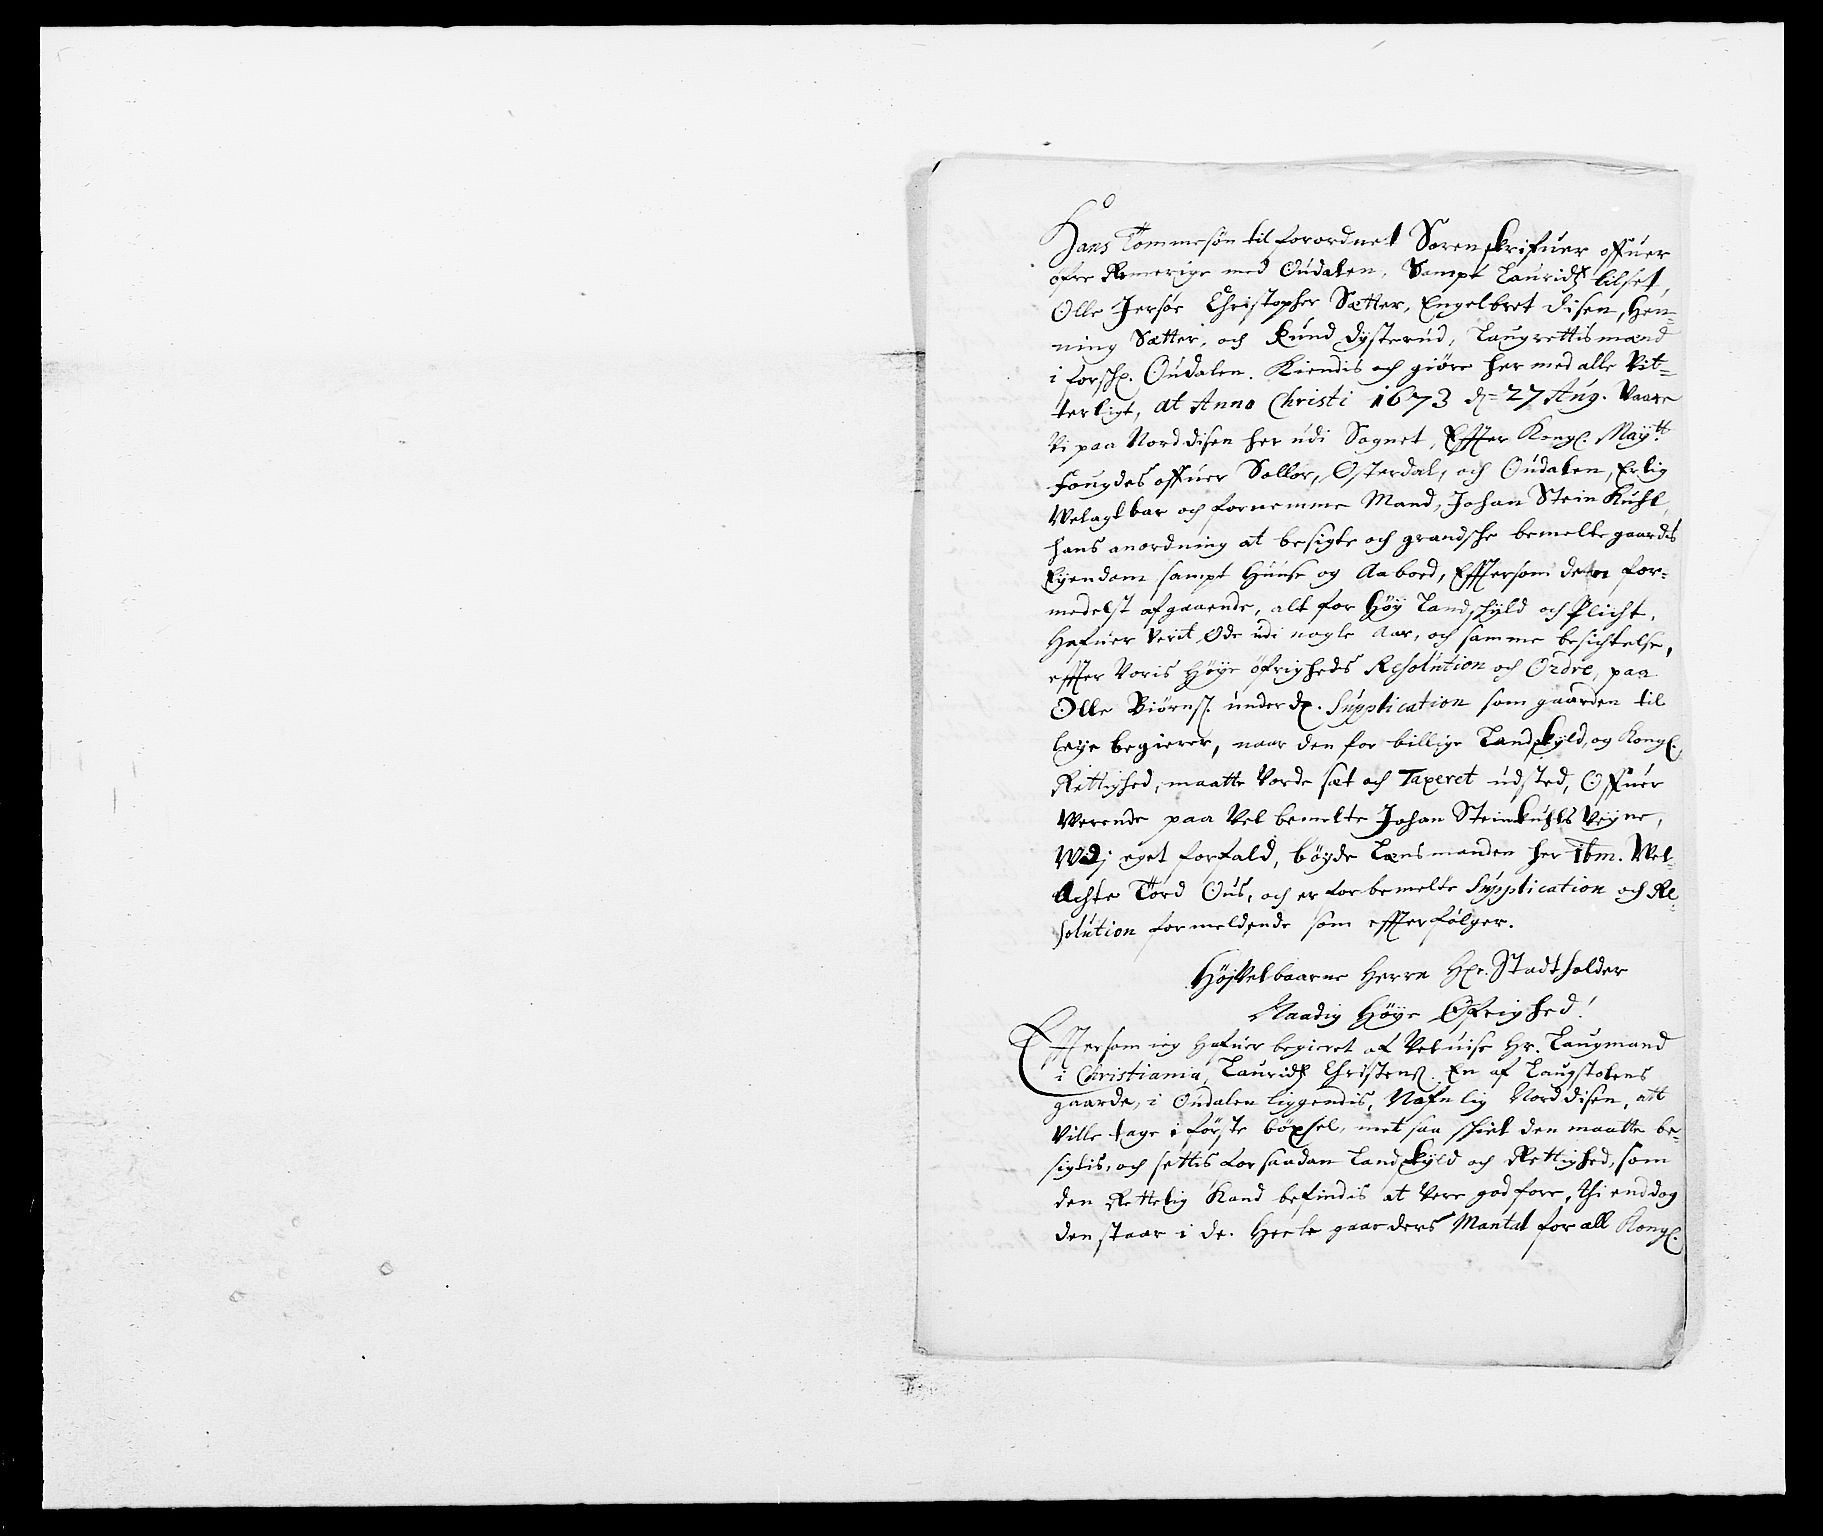 Hans Tommesøn til forordnet Sorenskrifuer offuer
øfre Romerige med Oudalen, Sampt Lauridtz lilset,
Olle Jersøe Christopher Sætter, Engelbret disen, Hen-
ning Sætter, och knud dysterud, Laugrettismænd
i forschr. Oudalen. Kiendis och giøre her med alle Vit-
terligt, at Anno Christi 1673 d= 27 Aug. Vaare
Vi paa Nord disen her udi Sognet, Effter Kongl. Maÿtt.
fougdes offuer Solløer, Østerdal, och Oudalen, Erlig
Welagtbar och fornemme Mand, Johan Stein Kuhl,
hans anordning at besigte och grandsche bemelte gaardis
Eyendom sampt Huuse og Aaboed, Efftersom den for-
medelst afgaaende, alt for høy Landschyld och Plicht,
Hafuer verit Øde udi nogle Aar, och samme besichtelse,
effter Voris Høye øfrigheds Resolution och Ordre, paa
Olle Biørns. under d. Supplication som gaarden til
leye begierer, naar den for billige Landskyld, og Kongl.
Rettighed, maatte Vorde sat och Taxeret udsted, Offuer
Werende paa Vel bemelte Johan Steinkuhls Veigne,
Widj eget forfald, bøyde Lænsmanden her ibm. Wel-
Achte Tord Ous, och er forbemelte Supplication och Re-
solution formeldende som effterfølger.
Høÿvelbaarne Herre Hr. Stadtholder
Naadig Høye Øfrighed!
Efftersom ieg hafuer begieret af Veluise Hr. Laugmand
i Christiania, Lauridtz Christens. En af Laugstolens
gaarde, i Oudalen liggendis, Nafnlig Nord disen, att
Ville tage i første bøxsel, met saa schiel den maatte be-
sigtis, och settis for saadan Landskyld och Rettighed, som
den Rettelig Kand befindis at Vere god fore, thi enddog
den staar i de. Heele gaarders Mantal for all Kongl.